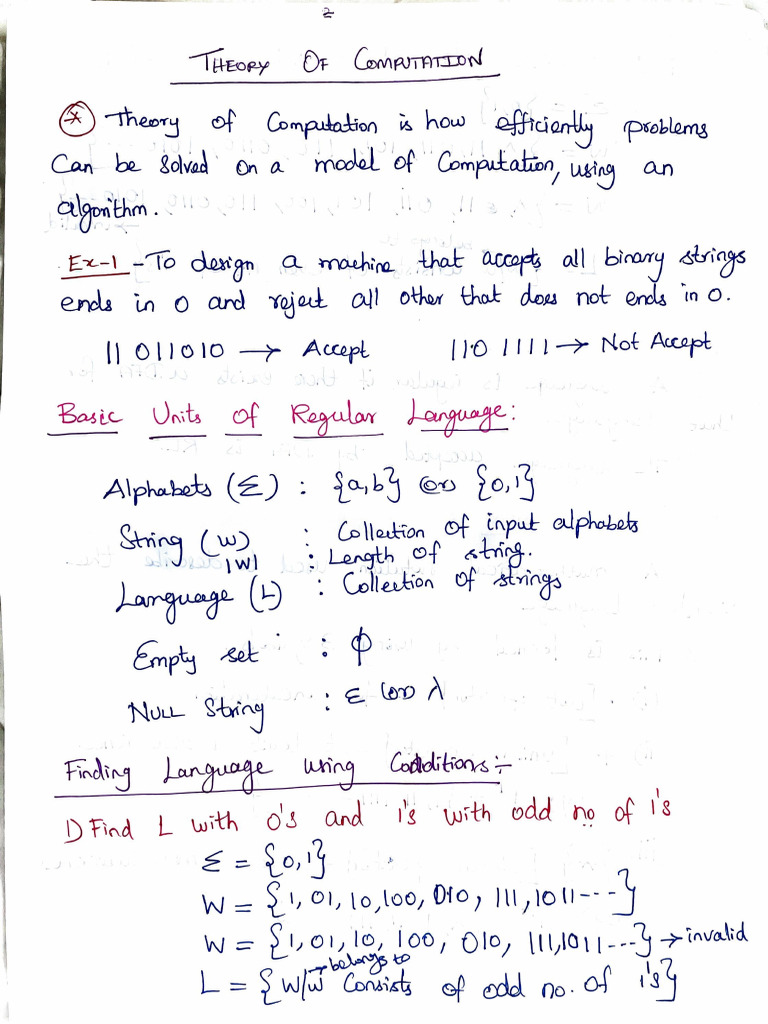 2
THEORY OF COMPUTATION
* Theory of Computation is how efficiently problems
Can be Solved on a model of Computation, using an
algorithm.
Ex-1 - To design a machine that accepts all binary strings
ends in 0 and reject all other that does not ends in 0.
11 011010 → Accept 110 1111 → Not Accept
Basic Units of Regular Language:
Alphabets (Σ) : {a,b} (or) {0,1}
String (w) : Collection of input alphabets
|w| : Length of string.
Language (L) : Collection of strings
Empty set : ϕ
NULL String : ε (or) λ
Finding Language using Conditions:-
1) Find L with 0's and 1's with odd no of 1's
Σ = {0,1}
W = {1, 01, 10, 100, 010, 111, 1011 ---}
W = {1, 01, 10, 100, 010, 111, 1011 ---} → invalid
→ belongs to
L = {W/W Consists of odd no. of 1's}